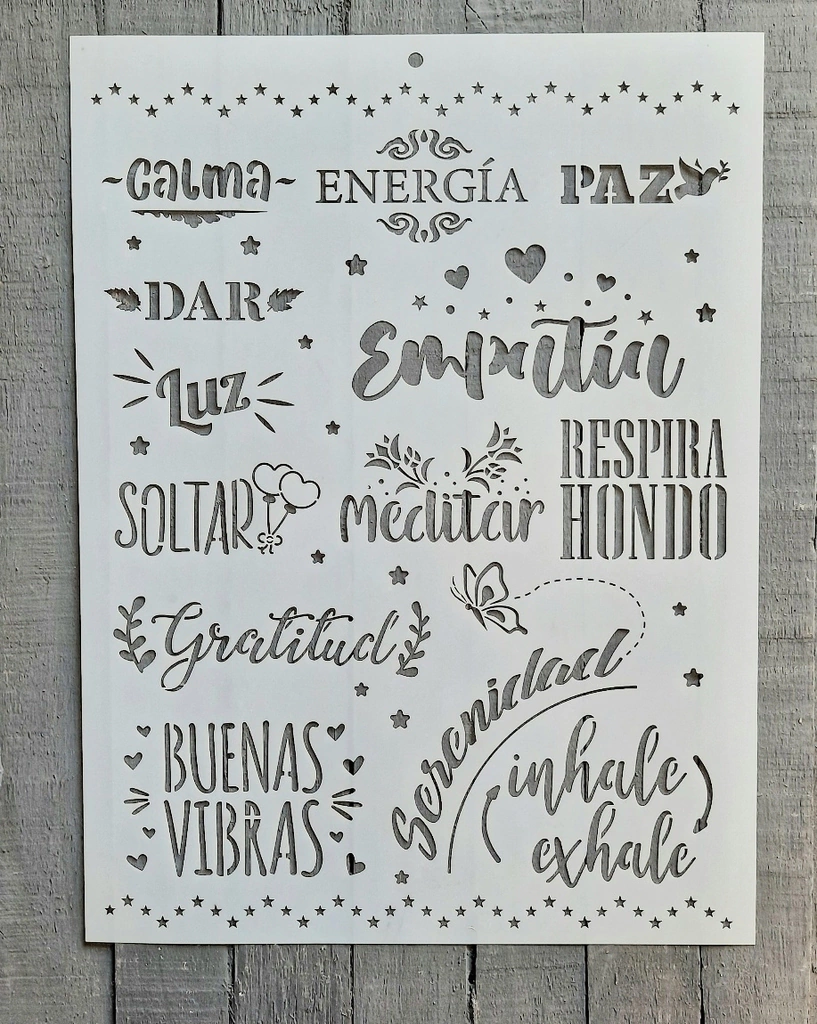 ~calma~
ENERGÍA
PAZ
DAR
Empatía
Luz
RESPIRA
HONDO
SOLTAR
Meditar
Gratitud
Serenidad
BUENAS
VIBRAS
inhale
exhale